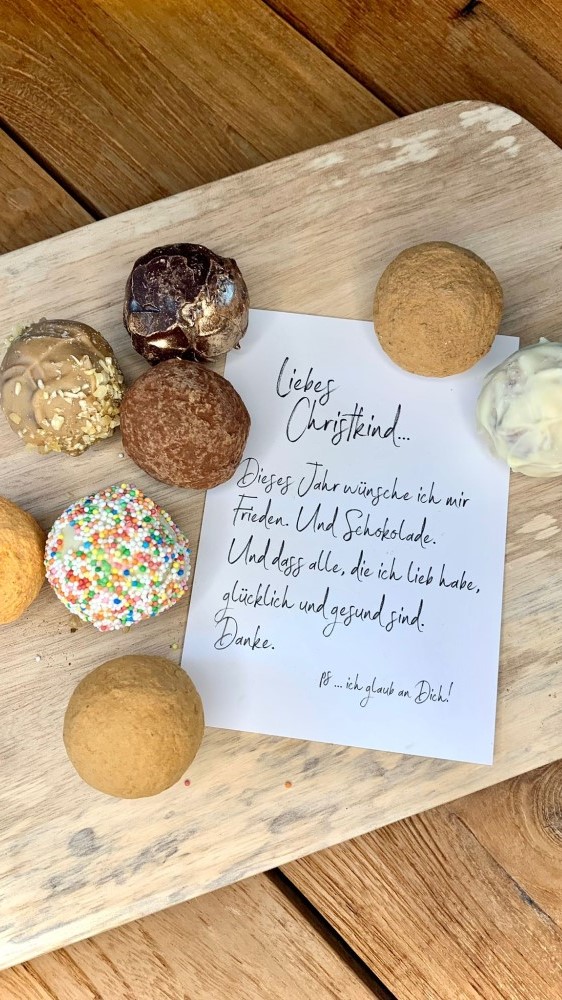 Liebes
Christkind...
Dieses Jahr wünsche ich mir
Frieden. Und Schokolade.
Und dass alle, die ich lieb habe,
glücklich und gesund sind.
Danke.
ps ... ich glaub an Dich!